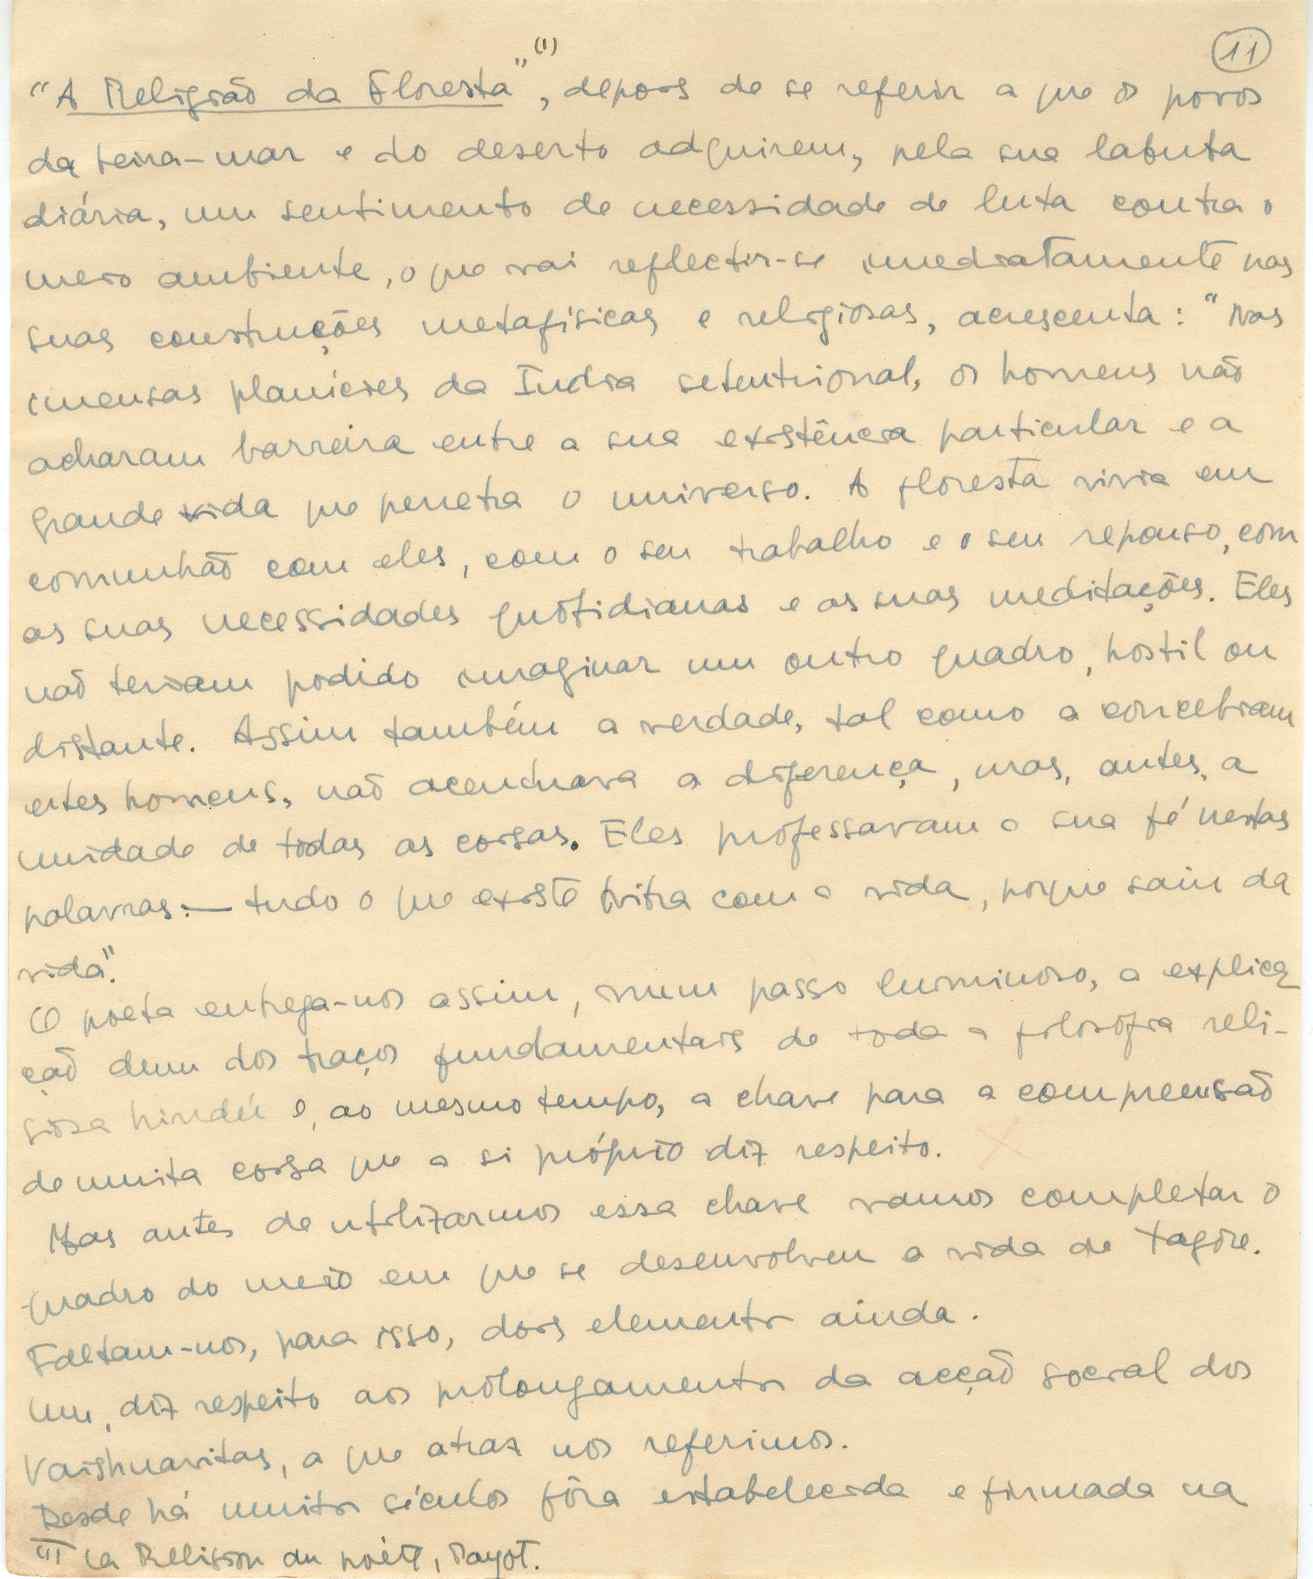 11
"A Religião da Floresta" (1), depois de se referir a que os povos
da beira-mar e do deserto adquirem, pela sua labuta
diária, um sentimento de necessidade de luta contra o
meio ambiente, o que vai reflectir-se imediatamente nas
suas construções metafísicas e religiosas, acrescenta: "Nas
imensas planícies da India setentrional, os homens não
acharam barreira entre a sua existência particular e a
grande vida que penetra o universo. A floresta vivia em
comunhão com eles, com o seu trabalho e o seu repouso, com
as suas necessidades quotidianas e as suas meditações. Eles
não teriam podido imaginar um outro quadro, hostil ou
distante. Assim também a verdade, tal como a concebiam
estes homens, não acentuava a diferença, mas, antes, a
unidade de todas as coisas. Eles professavam a sua fé nestas
palavras: — tudo o que existe vibra com a vida, porque saiu da
vida".
O poeta entrega-nos assim, num passo luminoso, a explica
ção dum dos traços fundamentais de toda a filosofia reli-
giosa hindú e, ao mesmo tempo, a chave para a compreensão
de muita coisa que a si próprio diz respeito.
Mas antes de utilizarmos essa chave vamos completar o
quadro do meio em que se desenvolveu a vida de Tagore.
Faltam-nos, para isso, dois elementos ainda.
Um, diz respeito aos prolongamentos da acção social dos
Vaishnavitas, a que atraz nos referimos.
Desde há muitos séculos fôra estabelecida e firmada na
(1) La Religion du poète, Payot.